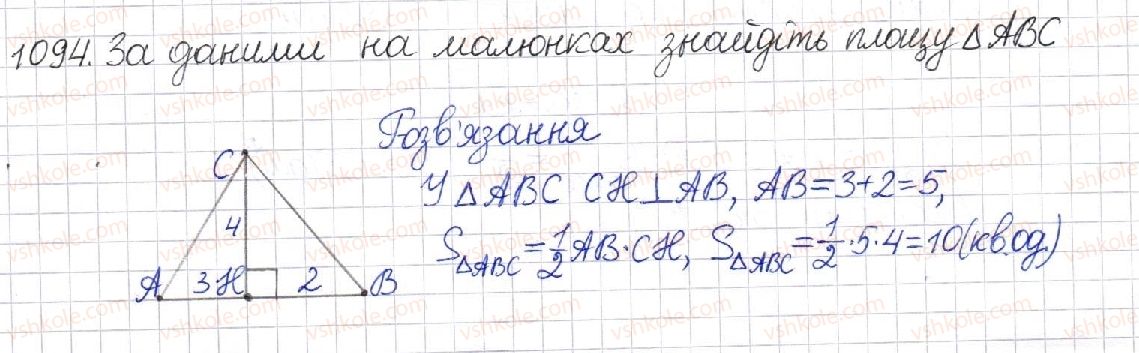 1094. За даними на малюнках знайдіть площу △ABC
Розв'язання
У △ABC CH⊥AB, AB=3+2=5,
S△ABC=1/2AB·CH, S△ABC=1/2·5·4=10(кв.од.)
C
4
A 3 H 2 B
vshkole.com